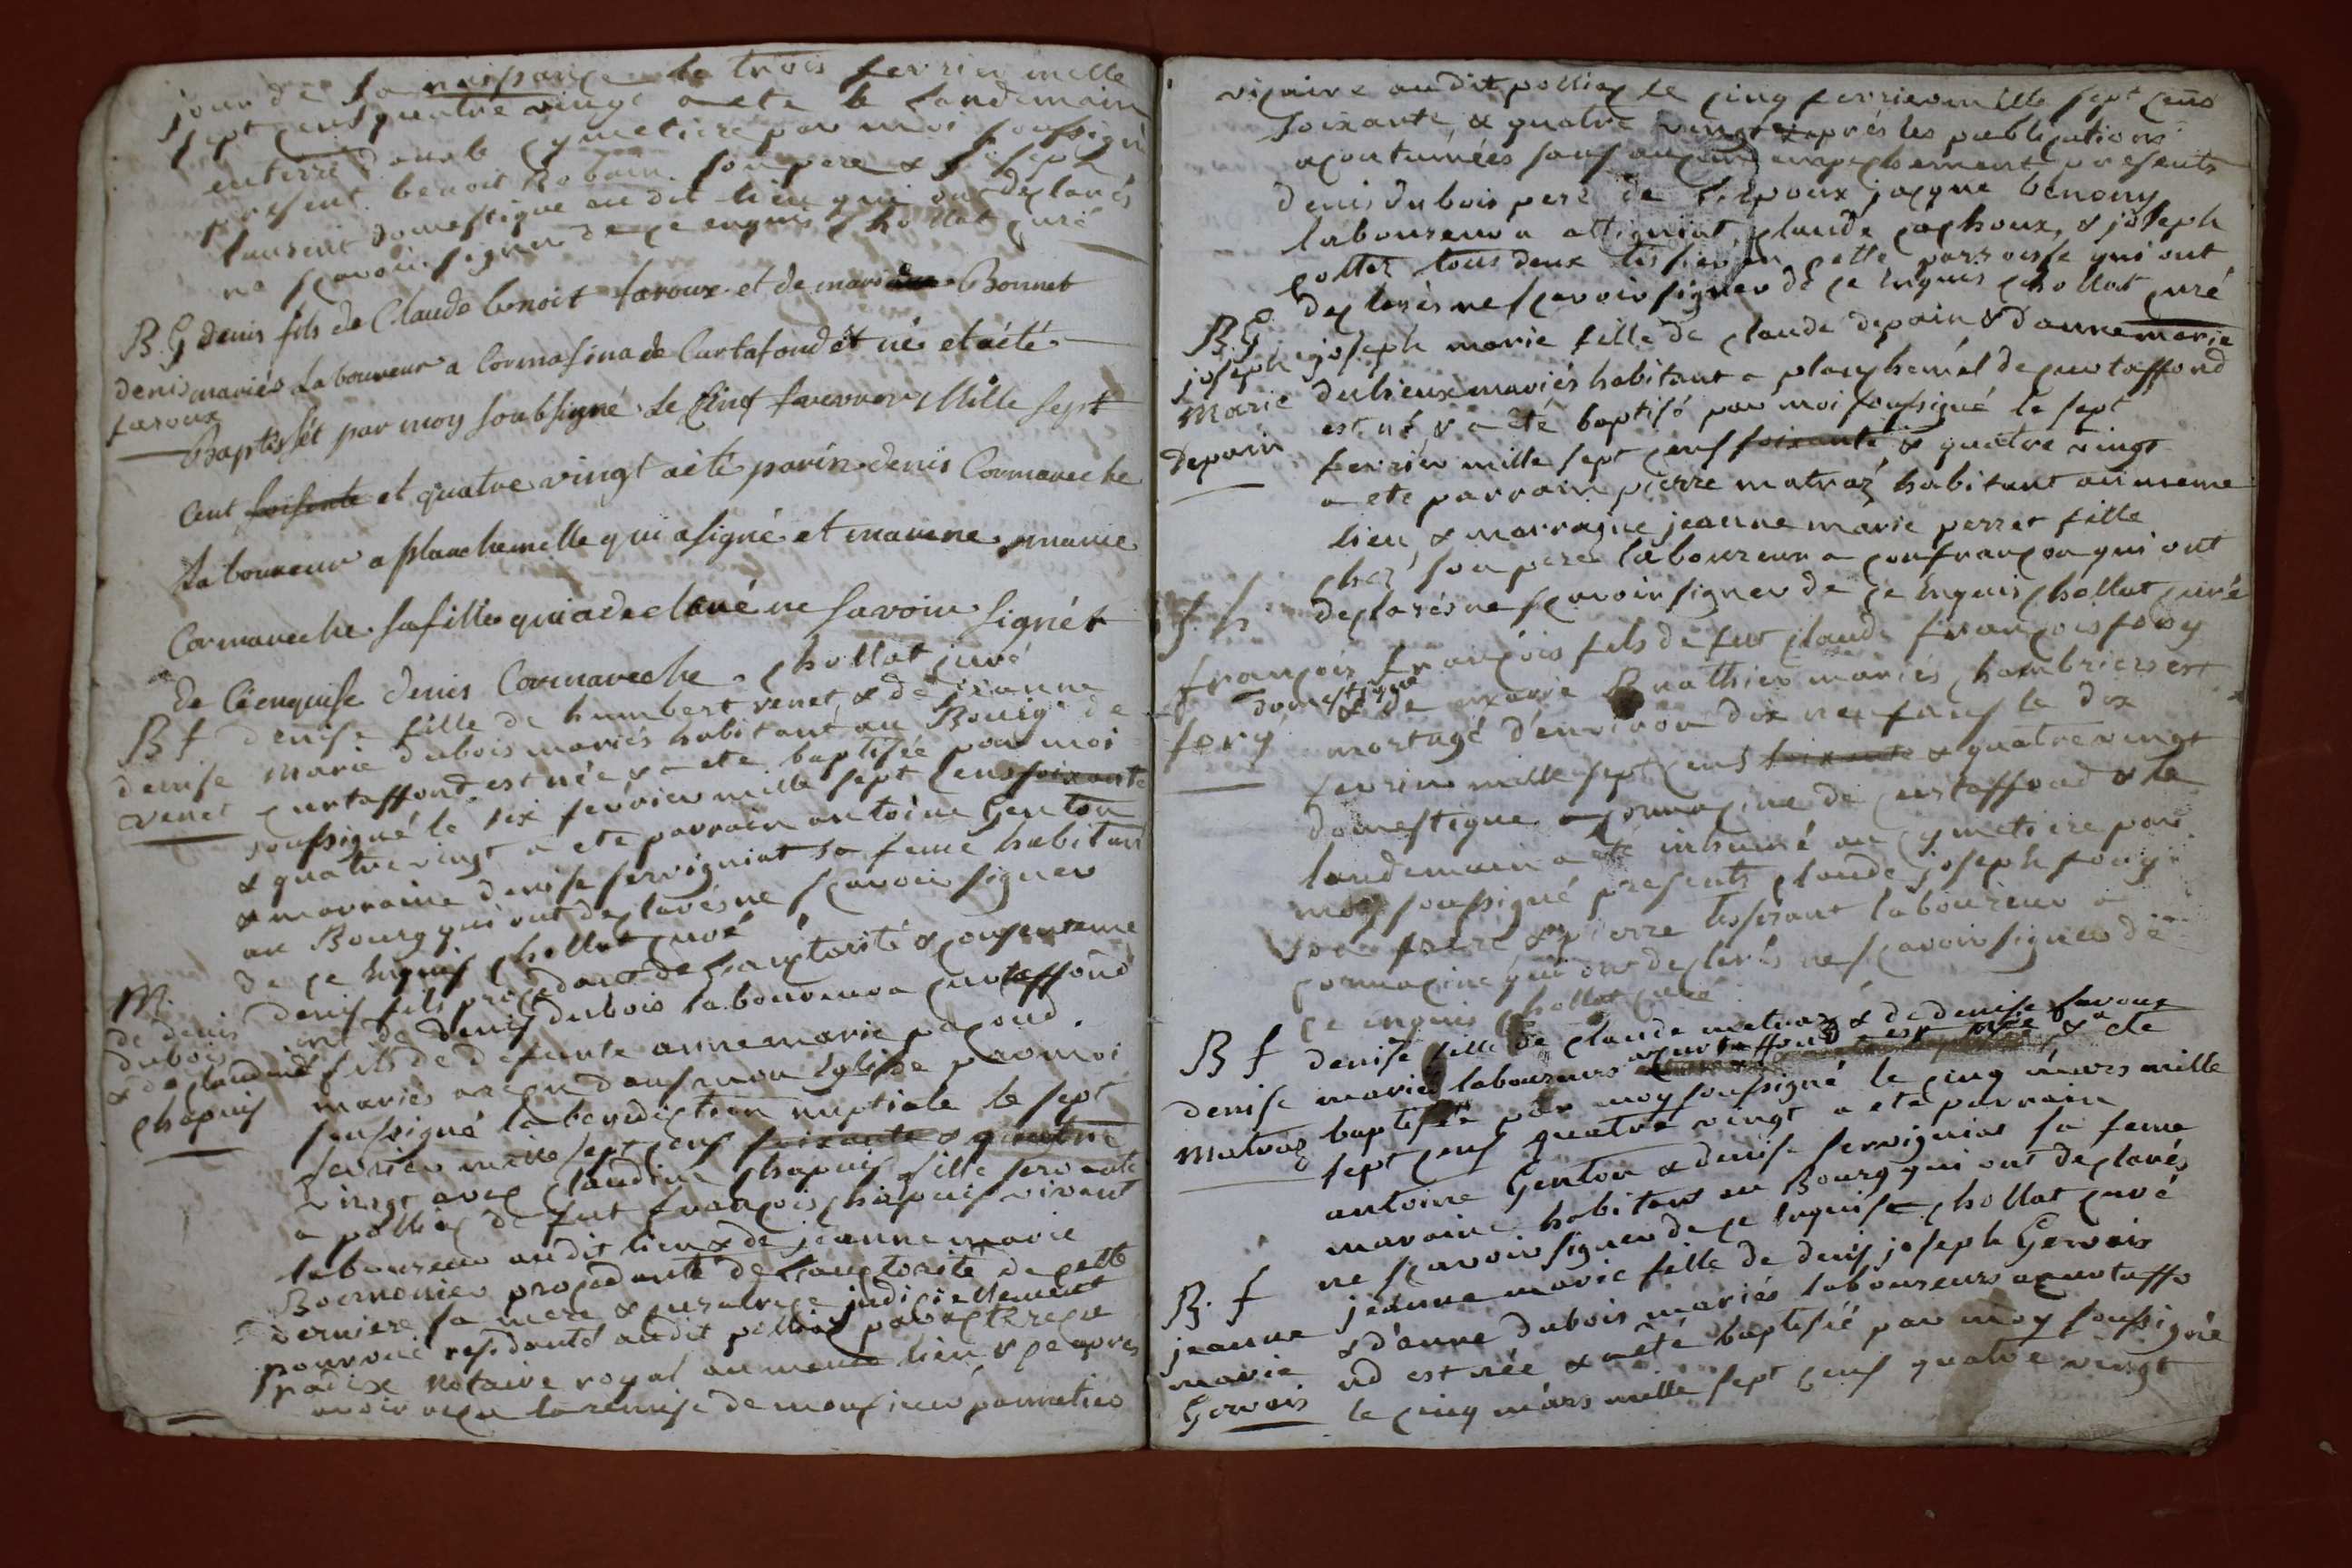 jour de sa naissance le trois fevrier mille
sept cens quatre vingt a ete le landemain
enterré dans le cymetiere par moi soussigné
present benoit Robain son pere & joseph
laurent domestique au dit lieu qui ont declarés
ne sçavoir signer de ce enquis chollat curé
B. G denis fils de Claude benoit faroux et de marie Bonnet
denis mariés Laboureur a Cormasina de Curtafond et né et aété
faroux
Baptissét par moy soubsigné Le Cinq fauvrier Mille sept
Cent soisente et quatre vingt aété parin denis Cormareche
Laboureur a planchemelle qui a signé et marene marie
Cormareche sa fille qui a declaré ne savoir signér
de Ceenquise denis Cormareche chollat curé
B f denise fille de humbert venet & de jeanne
denise marie dubois mariés habitant au Bourg de
venet curtaffond est née & a ete baptisée par moi
soussigné le six fevrier mille sept cens soixante
& quatre vingt a ete parrain antoine Genton
& marraine denise servigniat sa feme habitant
au Bourg qui ont declarés ne sçavoir signer
de ce enquis chollat curé
M. denis fils procedant de l'auctorité & consenteme
de denis nt de denis dubois laboureur a curtaffond
dubois
& de claudine fils de defunte anne marie pacoud
chapuis mariés a reçu dans mon Eglise par moi
soussigné la benediction nuptiale le sept
fevrier mille sept cens soixante & quatre
vingt avec claudine chapuis fille servante
a polliaç de fut françois chapuis vivant
laboureur au dit lieu & de jeanne marie
procedante de l'auctorité de cette
derniere sa mere & curatrice judiciellement
pourvue residante audit polliaç par acte reçu
notaire royal au meme lieu & ce apres
avoir reçu la remise de monsieur pannetier
vicaire au dit polliaç le cinq fevrier mille sept cens
soixante & quatre vingt & aprés les publications
acoutumées sans aucun empechement presents
denis dubois pere de l'epoux jacque benony
laboureur a attigniat, claude cachoux, & joseph
collet tous deux tissier en cette parroisse qui ont
declarés ne sçavoir signer de ce enquis chollat curé
B. G joseph marie fille de claude depain & d'anne marie
joseph
marie dulieux mariés habitant a planchemel de curtaffond
est né & a été baptisé par moi soussigné le sept
depain fevrier mille sept cens soixante & quatre vingt
a ete parrain pierre matraz habitant au meme
lieu & marraine jeanne marie perret fille
chez son pere laboureur a confrançon qui ont
declarés ne sçavoir signer de ce enquis chollat curé
S. h. françois fils de fut claude françois fory
françois domestique & de marie Brathier mariés chambriers est
fory mortagé d'environ dix neuf ans le dix
fevrier mille sept cens soixante & quatre vingt
domestique a cormacine de curtaffond & le
landemain a été inhumé au cymetiere par
moy soussigné presents claude joseph fory
son frere & pierre tisserant laboureur a
cormacine qui ont declarés ne sçavoir signer de
ce enquis chollat curé
B f denise fille de claude matraz & de denise favoux
denise mariés laboureurs a curtaffond est née & a ete
matraz baptisée par moy soussigné le cinq mars mille
sept cens quatre vingt a ete parrain
antoine Genton & denise servigniat sa feme
maraine habitant au Bourg qui ont declarés
ne sçavoir signer de ce enquis chollat curé
B. f jeanne marie fille de denis joseph Gervais
jeanne & d'anne dubois mariés laboureurs a curtaffo
marie nd est née & a eté baptisée par moy soussigné
Gervais le cinq mars mille sept cens quatre vingt